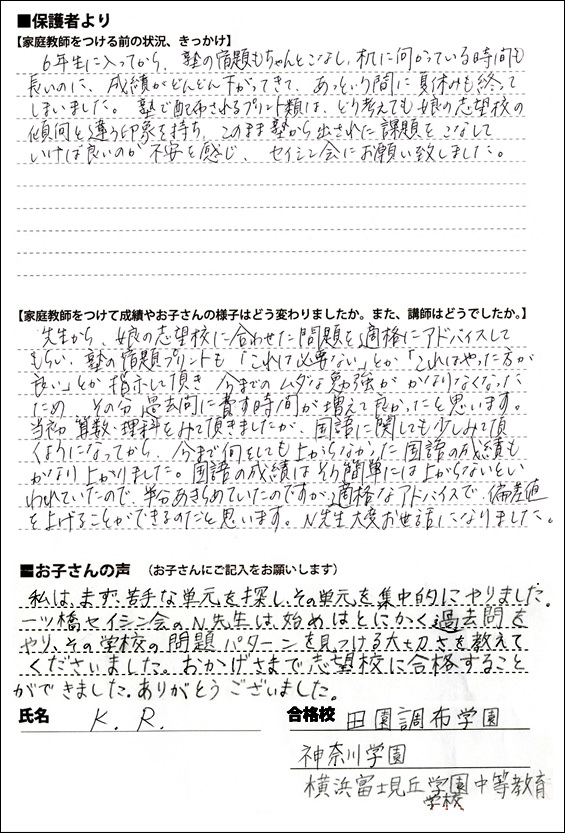 ■保護者より
【家庭教師をつける前の状況、きっかけ】
6年生に入ってから、塾の宿題もちゃんとこなし、机に向かっている時間も
長いのに、成績がどんどん下がってきて、あっという間に夏休みも終って
しまいました。塾で配布されるプリント類は、どう考えても娘の志望校の
傾向と違う印象を持ち、このまま塾から出された課題をこなして
いけば良いのか不安を感じ、セイシン会にお願い致しました。
【家庭教師をつけて成績やお子さんの様子はどう変わりましたか。また、講師はどうでしたか。】
先生から、娘の志望校に合わせた問題を適格にアドバイスして
もらい、塾の宿題プリントも「これは必要ない」とか「これはやった方が
良い」とか指示して頂き、今までのムダな勉強がかなりなくなった
ため、その分過去問に費す時間が増えて良かったと思います。
当初算数・理科をみて頂きましたが、国語に関しても少しみて頂
くようになってから、今まで何をしても上がらなかった国語の成績も
かなり上がりました。国語の成績はそう簡単には上がらないとい
われていたので、半分あきらめていたのですが、適格なアドバイスで、偏差値
を上げることができるのだと思います。N先生大変お世話になりました。
■お子さんの声 （お子さんにご記入をお願いします）
私は、まず、苦手な単元を探し、その単元を集中的にやりました。
一ツ橋セイシン会のN先生は、始めはとにかく過去問を
やり、その学校の問題パターンを見つける大切さを教えて
くださいました。おかげさまで志望校に合格すること
ができました。ありがとうございました。
氏名 K. R. 合格校 田園調布学園
神奈川学園
横浜富士見丘学園中等教育
学校